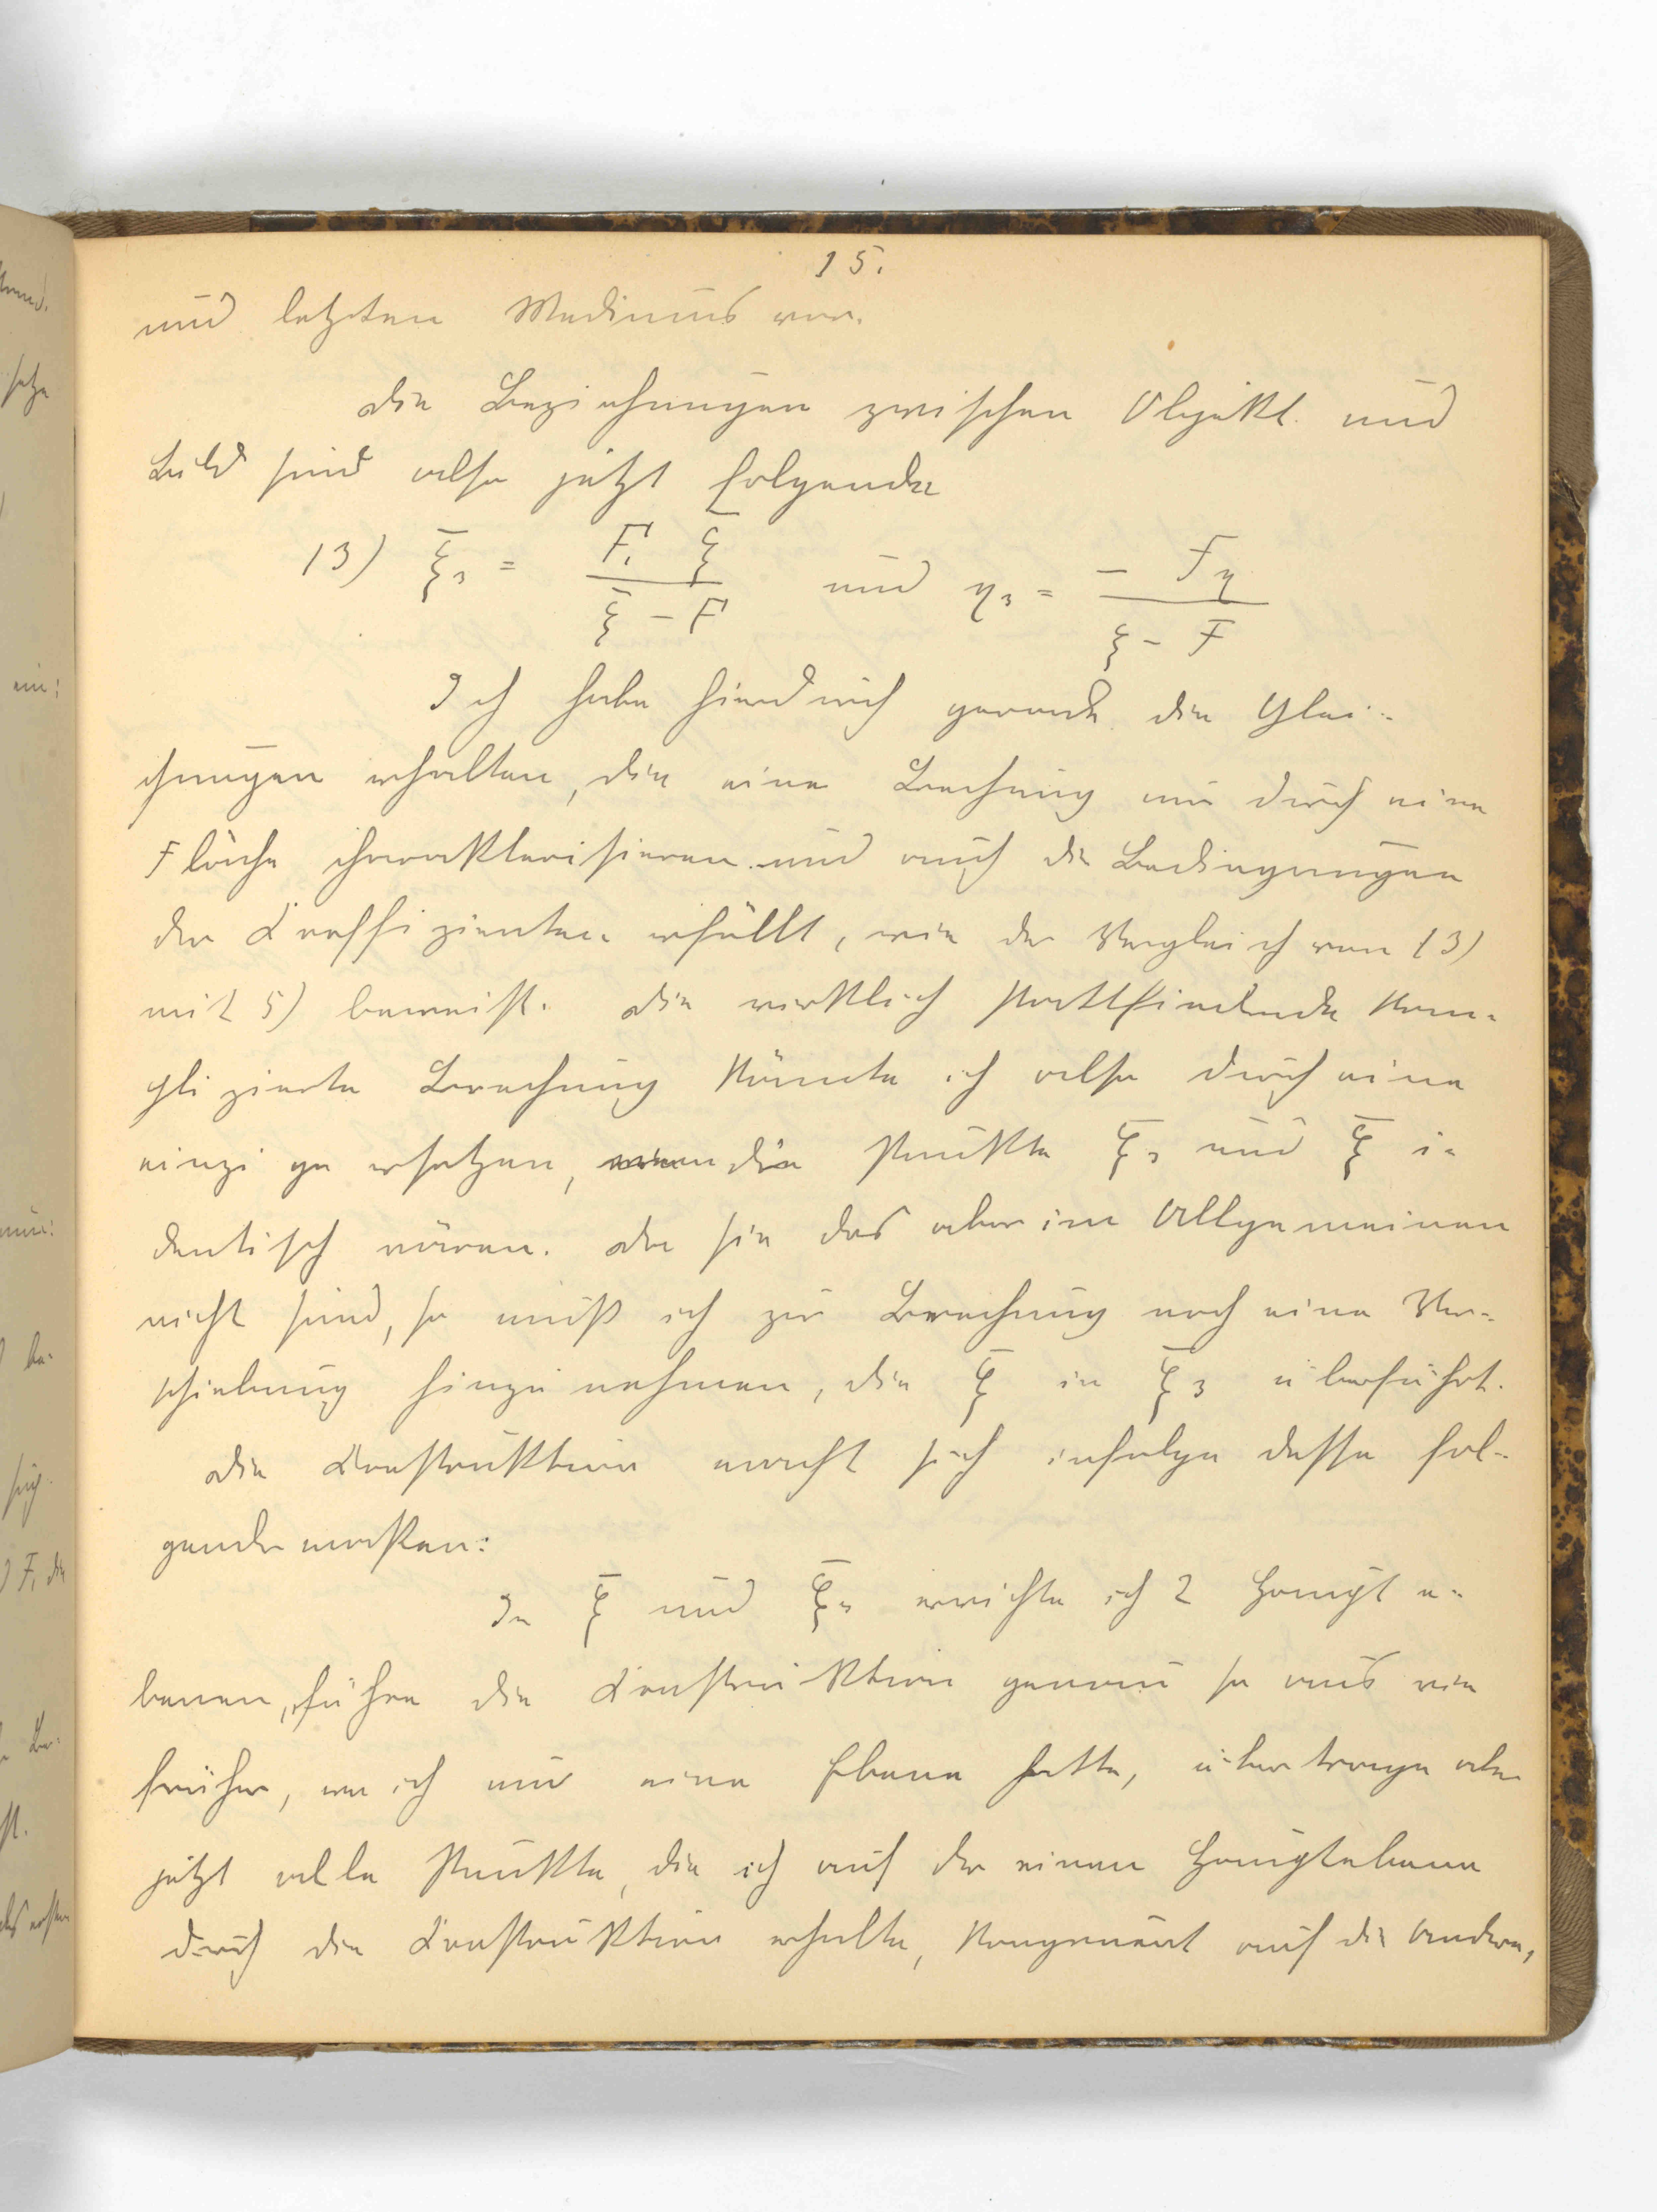 15.
und letzten Mediums vor.
Die Beziehungen zwischen Objekt und
Bild sind also jetzt folgende
13) ξ̄₃ = F₁ ξ̄ / (ξ̄ - F) und η₃ = - Fη / (ξ - F)
Ich habe hierdurch gerade die Glei-
chungen erhalten, die eine Brechung nur durch eine
Fläche charakterisieren und auch die Bedingungen
der Koeffizienten erfüllt, wie der Vergleich von 13)
mit 5) beweist. Die wirklich stattfindende kom-
plizierte Brechung könnte ich also durch eine
einzige ersetzen, wenn die Punkte ξ̄₃ und ξ̄ i-
dentisch wären. Da sie das aber im Allgemeinen
nicht sind, so muß ich zur Brechung noch eine Ver-
schiebung hinzunehmen, die ξ̄ in ξ̄₃ überführt.
Die Konstruktion macht sich infolge dessen fol-
gendermaßen:
In ξ̄ und ξ̄₃ errichte ich 2 Haupte-
benen, führe die Konstruktion genau so aus wie
früher, wo ich nur eine Ebene hatte, übertrage aber
jetzt alle Punkte, die ich auf der einen Hauptebene
durch die Konstruktion erhalte, kongruent auf die Andere,